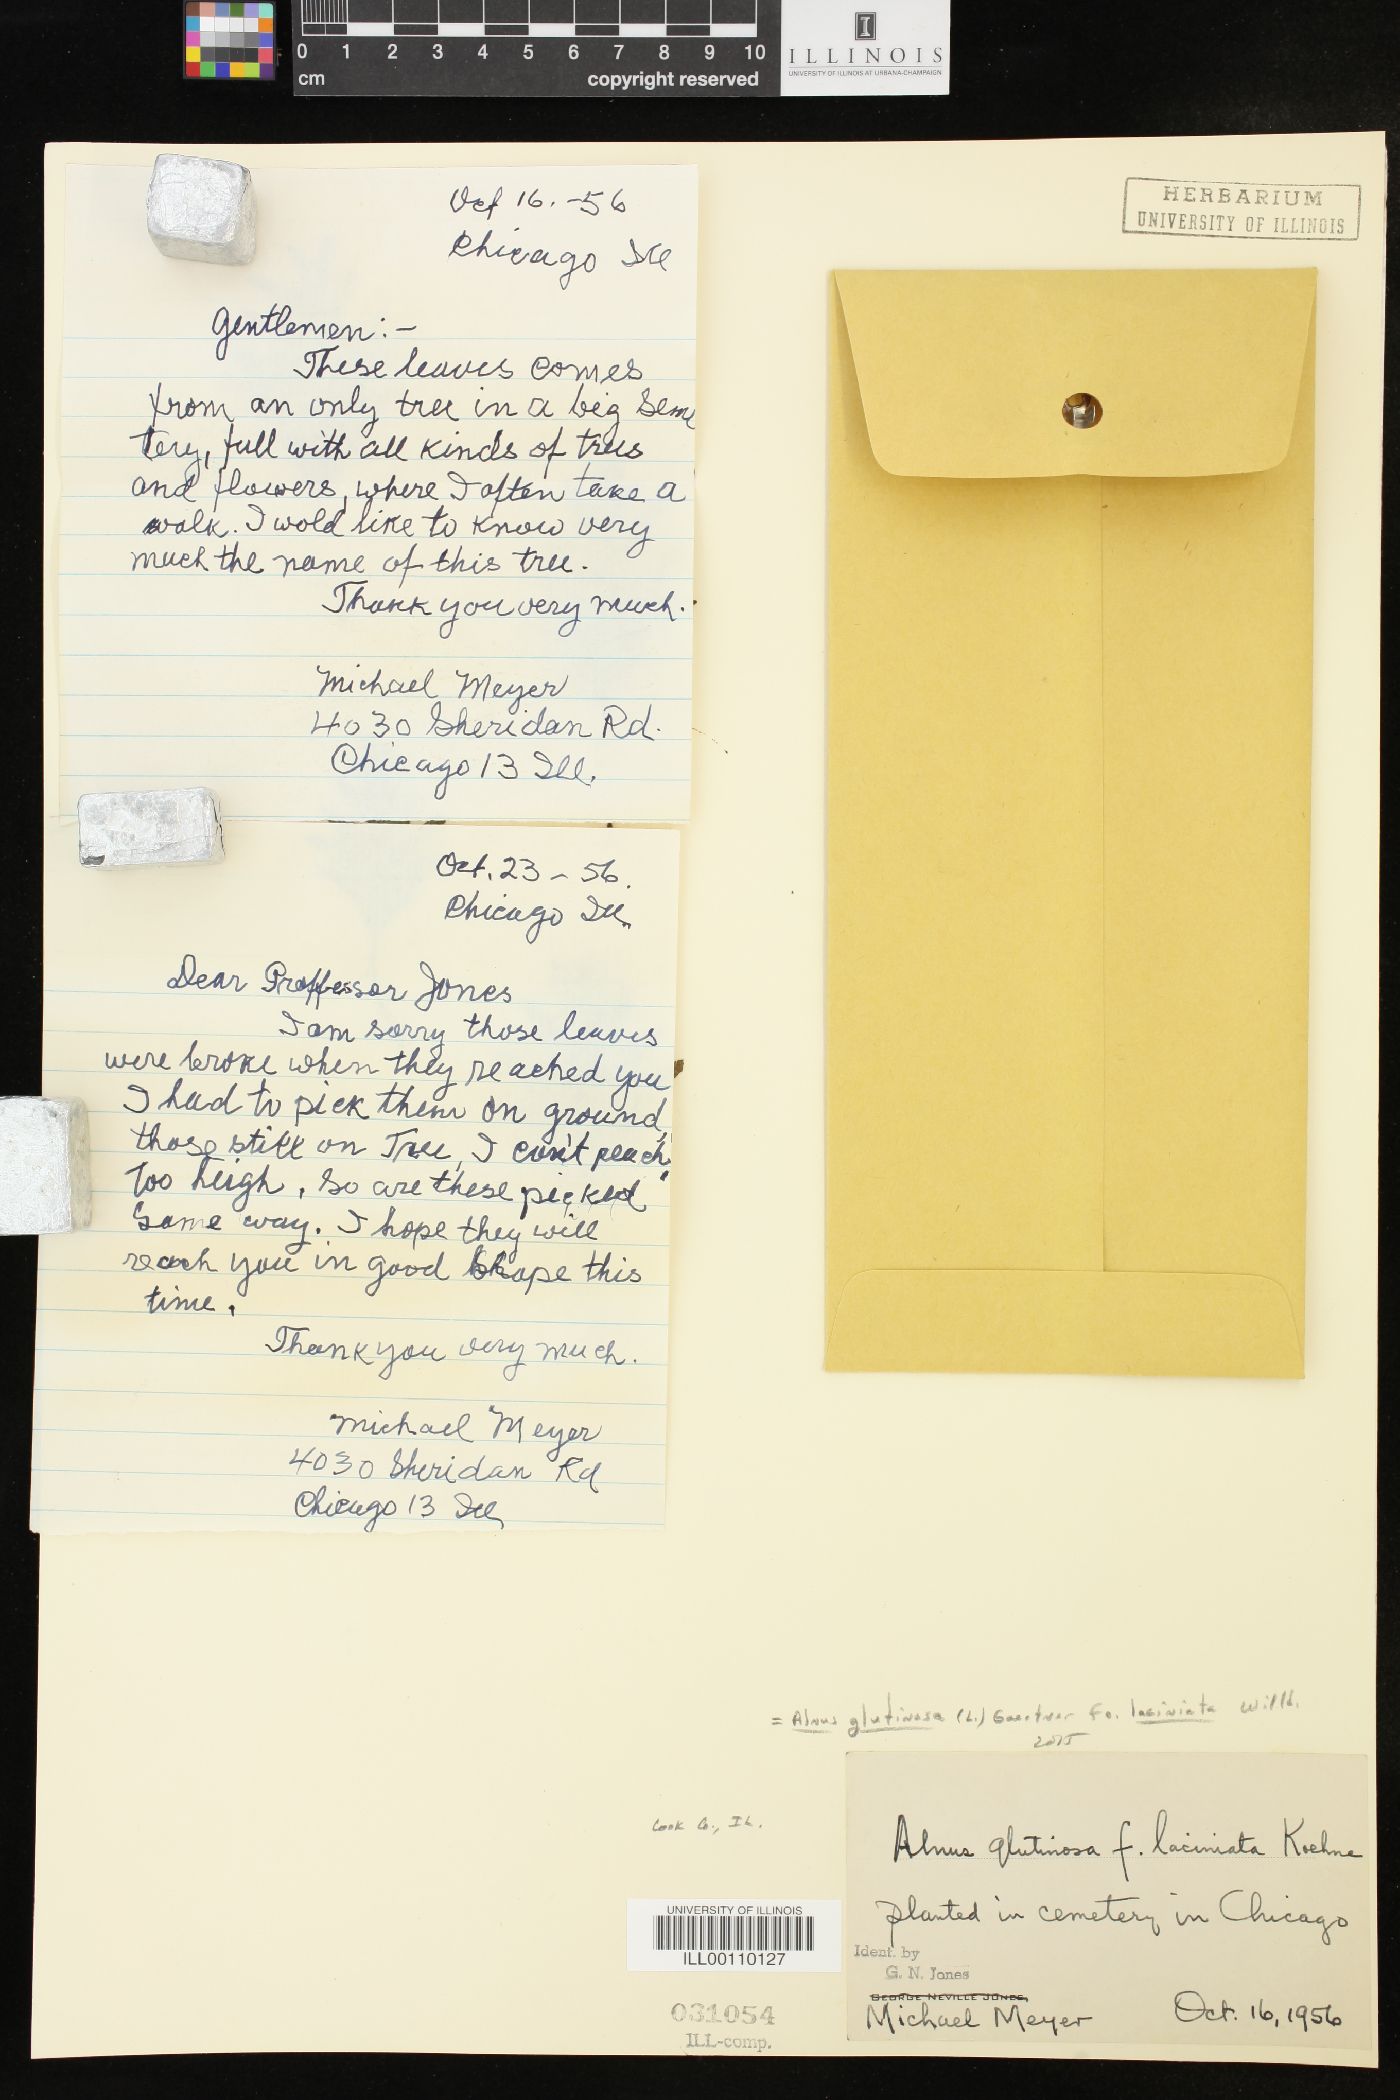 0 1 2 3 4 5 6 7 8 9 10
cm
copyright reserved
I
ILLINOIS
UNIVERSITY OF ILLINOIS AT URBANA-CHAMPAIGN
HERBARIUM
UNIVERSITY OF ILLINOIS
Oct 16. -56
Chicago Ill
Gentlemen:-
These leaves comes
from an only tree in a big Seme
tery, full with all kinds of trees
and flowers, where I often take a
walk. I wold like to know very
much the name of this tree.
Thank you very much.
Michael Meyer
4030 Sheridan Rd.
Chicago 13 Ill.
Oct. 23 - 56.
Chicago Ill.
Dear Proffessor Jones
I am sorry those leaves
were broke when they reached you
I had to pick them on ground,
those still on Tree, I can't reach
Too heigh, So are these picked
Same way. I hope they will
reach you in good shape this
time.
Thank you very much.
Michael Meyer
4030 Sheridan Rd
Chicago 13 Ill
= Alnus glutinosa (L.) Gaertner fo. laciniata Willd.
2015
Cook Co., IL.
Alnus glutinosa f. laciniata Koehne
planted in cemetery in Chicago
Ident. by
G. N. Jones
GEORGE NEVILLE JONES,
Michael Meyer Oct. 16, 1956
UNIVERSITY OF ILLINOIS
ILL00110127
031054
ILL-comp.